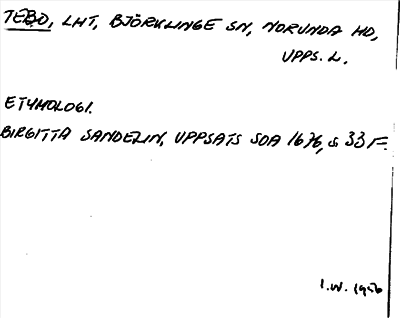 TEBO, LHT, BJÖRKLINGE SN, NORUNDA HD,
UPPS. L.
ETYMOLOGI.
BIRGITTA SANDELIN, UPPSATS SOA 1676, S 33 F.
I.W. 1956